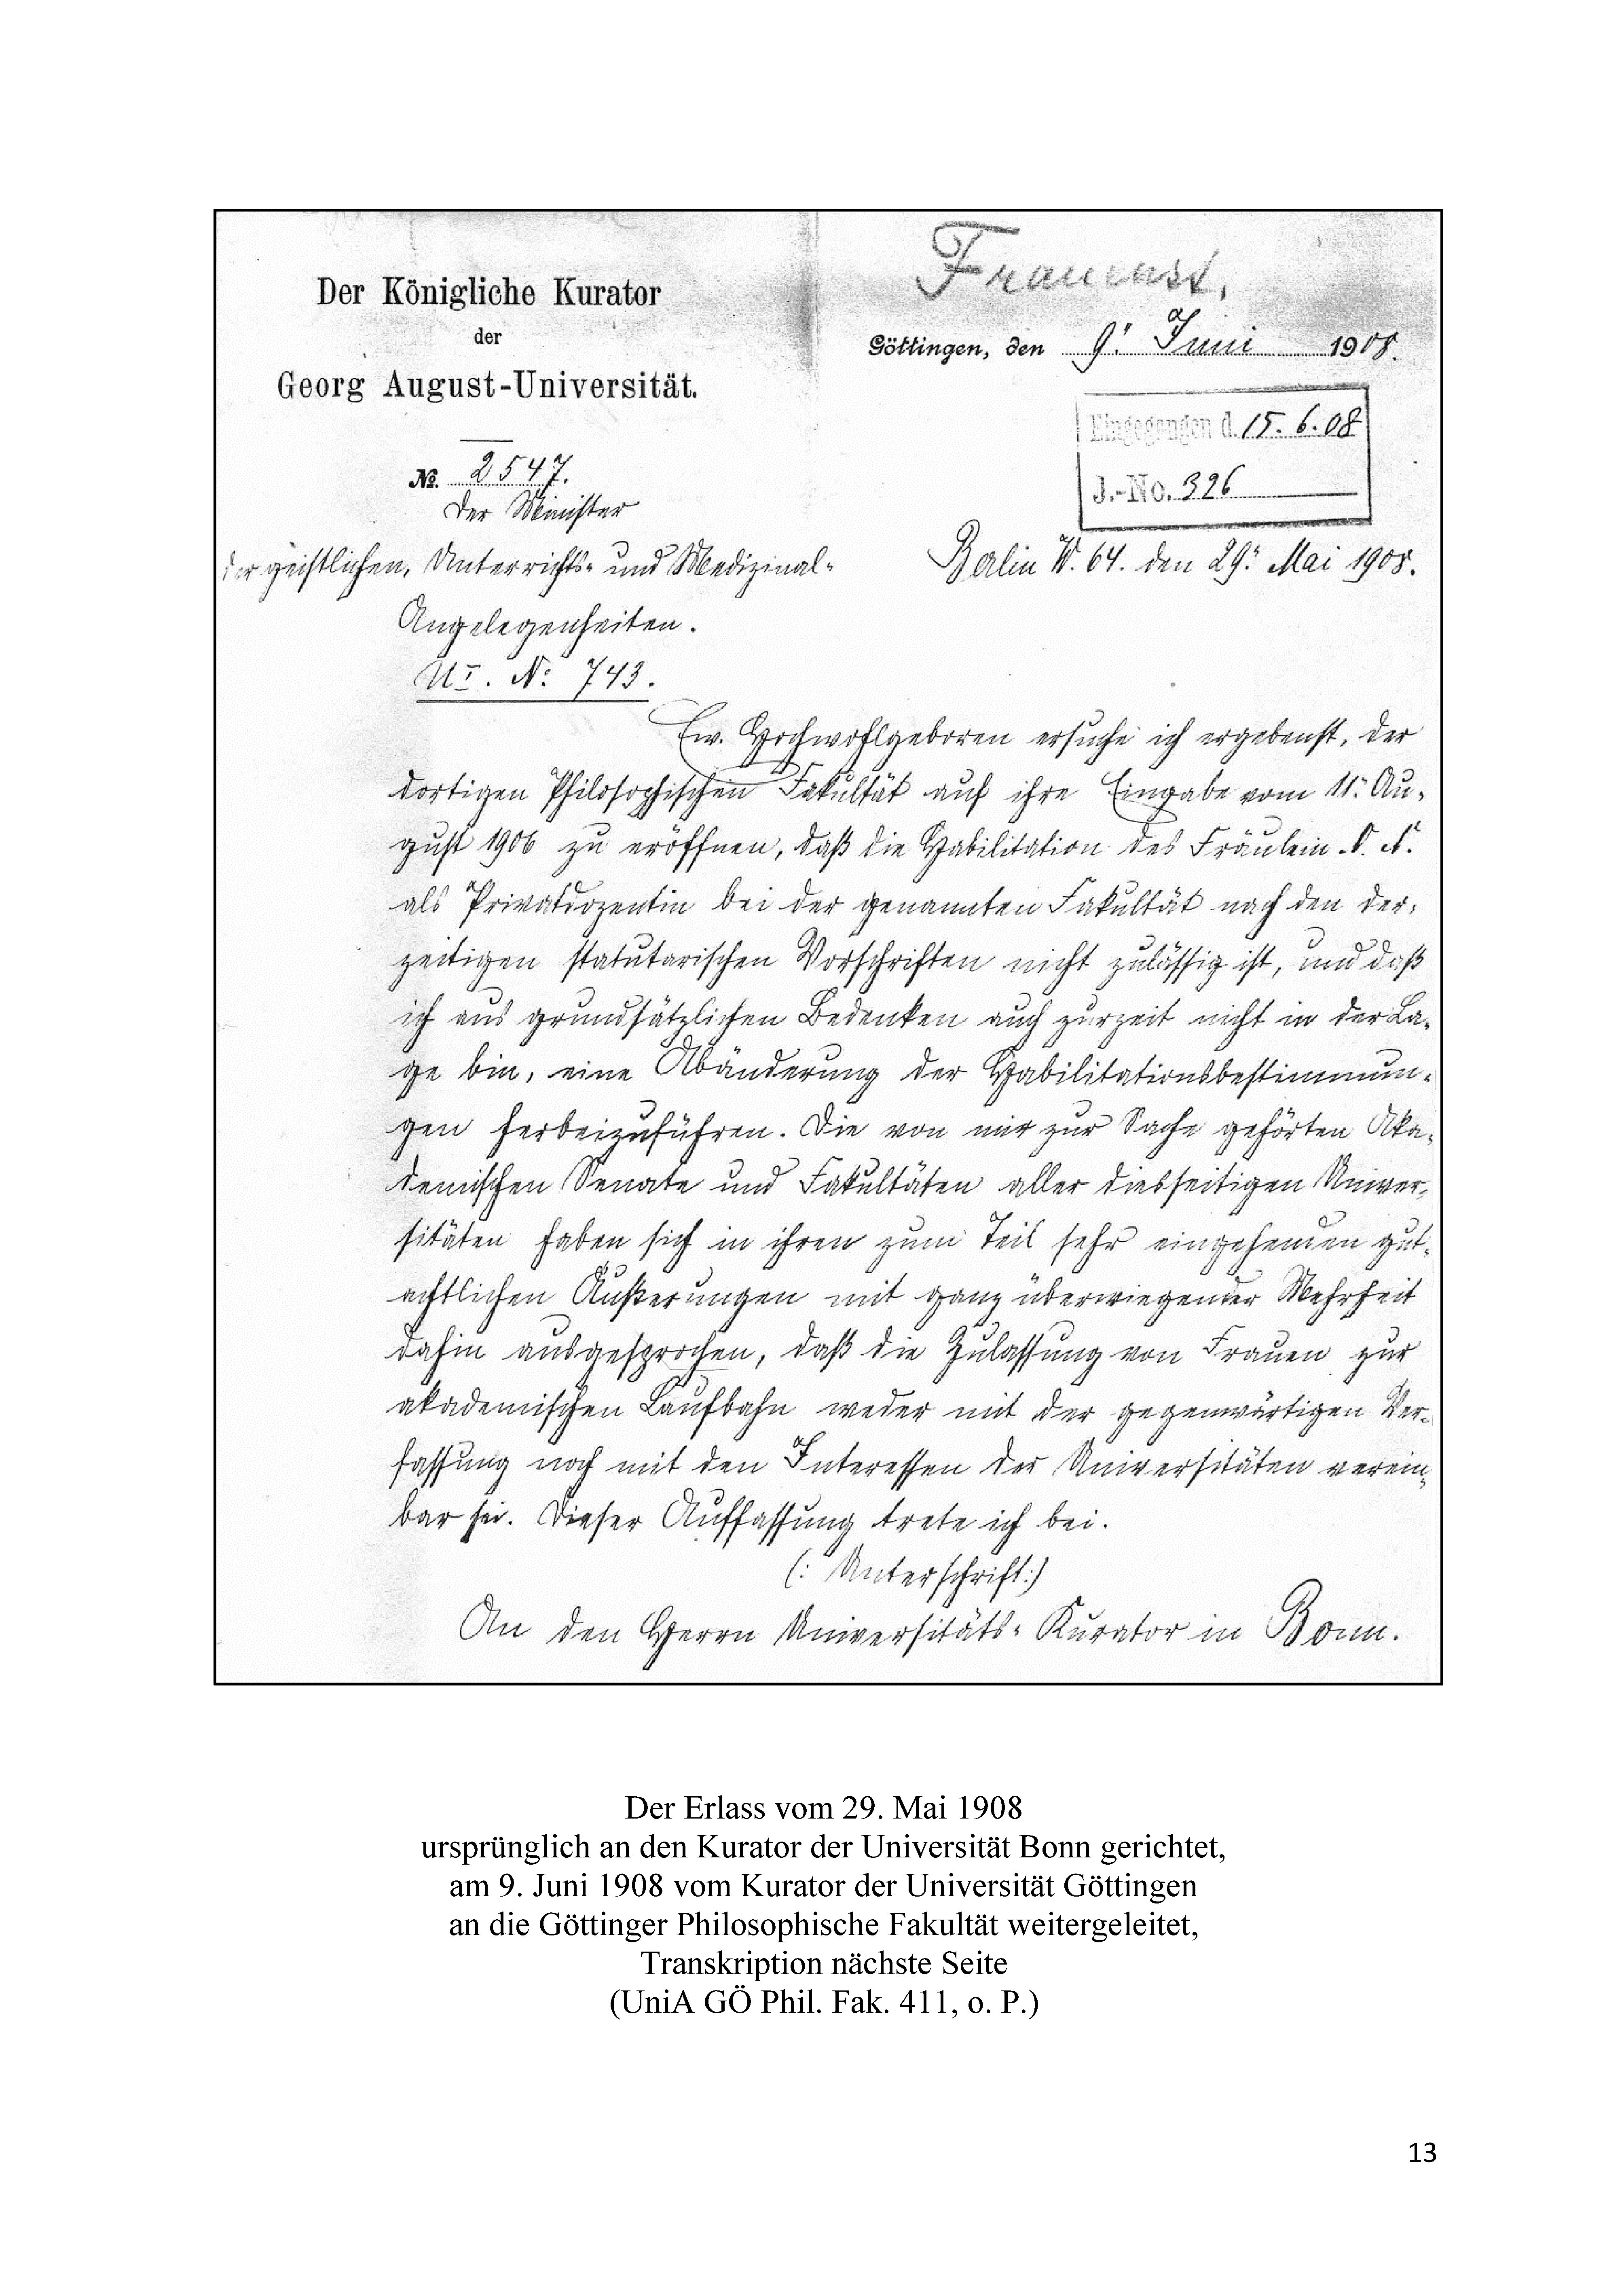 Frauenst.
Der Königliche Kurator
der
Georg August-Universität.
Göttingen, den 9. Juni 1908.
Eingegangen d. 15. 6. 08
J.-No. 326
No. 2547.
Der Minister
der geistlichen, Unterrichts- und Medizinal-
Angelegenheiten.
Berlin W. 64. den 29. Mai 1908.
UI. No 743.
Ew. Hochwohlgeboren ersuche ich ergebenst, der
dortigen Philosophischen Fakultät auf ihre Eingabe vom 11. Au-
gust 1906 zu eröffnen, daß die Habilitation des Fräulein
als Privatdozentin bei der genannten Fakultät nach den der-
zeitigen statutarischen Vorschriften nicht zulässig ist, und daß
ich aus grundsätzlichen Bedenken auch zurzeit nicht in der La-
ge bin, eine Abänderung der Habilitationsbestimmun-
gen herbeizuführen. Die von mir zur Sache gehörten Aka-
demischen Senate und Fakultäten aller diesseitigen Univer-
sitäten haben sich in ihren zum Teil sehr eingehenden gut-
achtlichen Äußerungen mit ganz überwiegender Mehrheit
dahin ausgesprochen, daß die Zulassung von Frauen zur
akademischen Laufbahn weder mit der gegenwärtigen Ver-
fassung noch mit den Interessen der Universitäten verein-
bar sei. Dieser Auffassung trete ich bei.
(: Unterschrift:)
An den Herrn Universitäts-Kurator in Bonn.
Der Erlass vom 29. Mai 1908
ursprünglich an den Kurator der Universität Bonn gerichtet,
am 9. Juni 1908 vom Kurator der Universität Göttingen
an die Göttinger Philosophische Fakultät weitergeleitet,
Transkription nächste Seite
(UniA GÖ Phil. Fak. 411, o. P.)
13